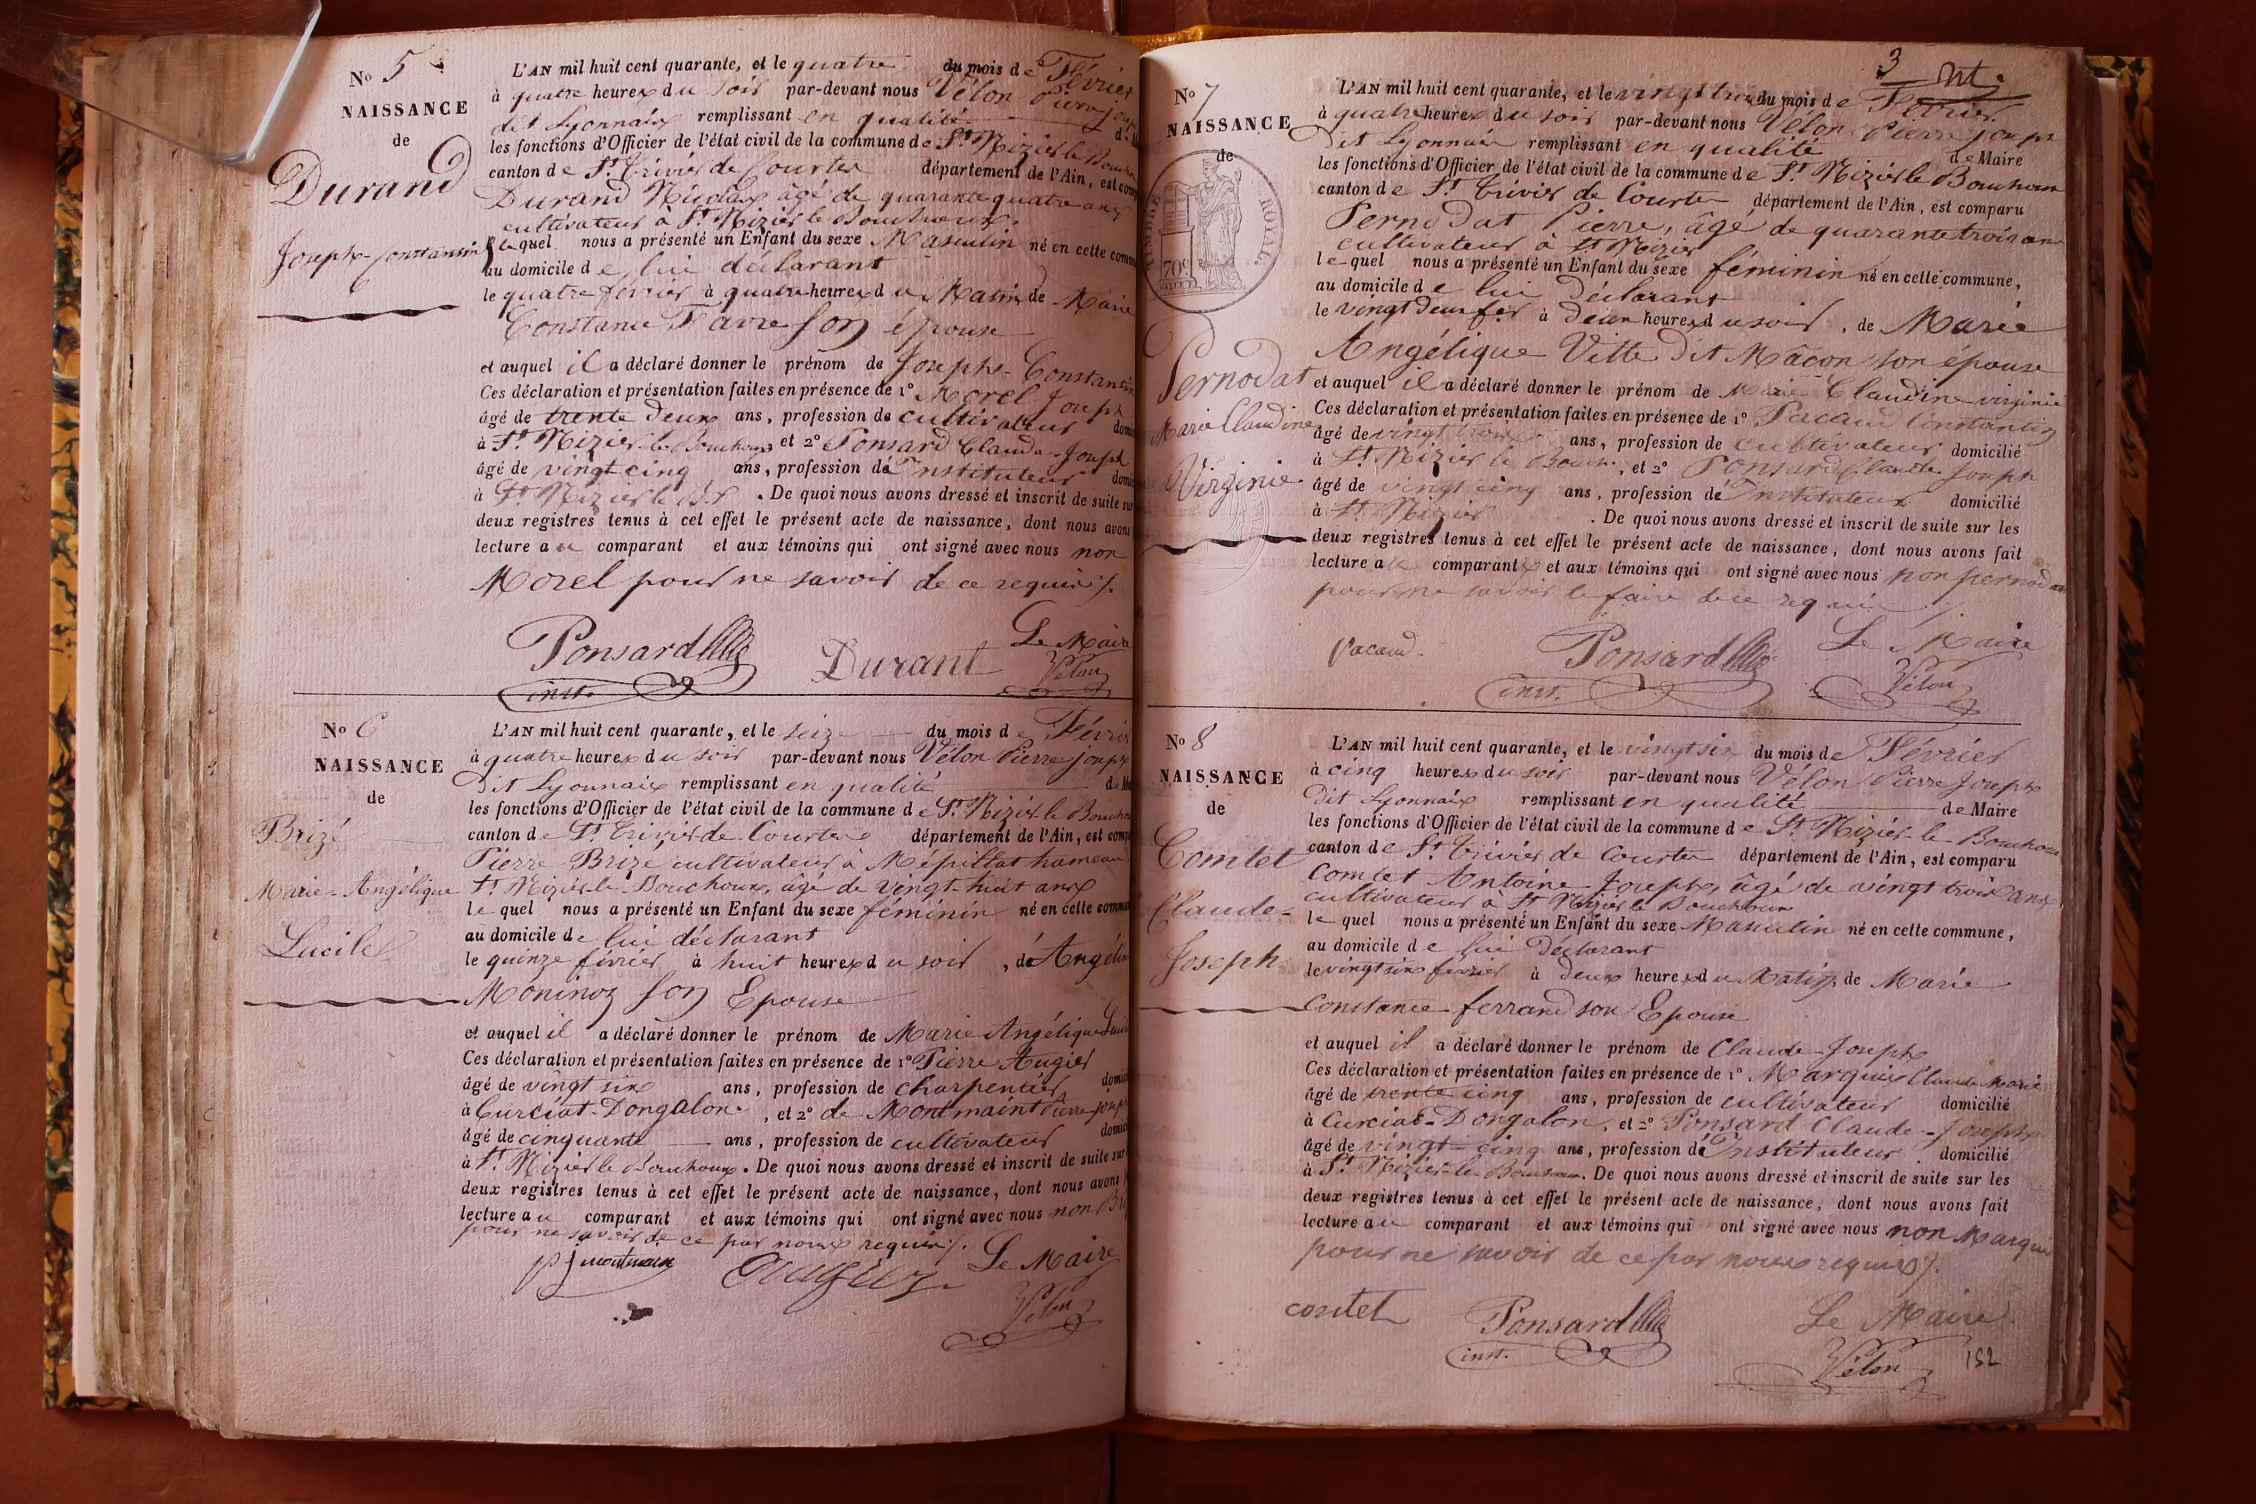 No 5
NAISSANCE
de
Durand
Joseph-Constantin
L'AN mil huit cent quarante, et le quatre du mois de Février
à quatre heures du soir par-devant nous Vélon Pierre joseph
dit Lyonnais remplissant en qualité de
les fonctions d'Officier de l'état civil de la commune de St. Nizier le Bouchoux
canton de St. Trivier de Courtes département de l'Ain, est comparu
Durand Nicolas âgé de quarante quatre ans
cultivateur à St Nizier le Bouchoux
lequel nous a présenté un Enfant du sexe Masculin né en cette commune
au domicile de lui déclarant
le quatre février à quatre heures du Matin de Marie
Constance Favre son épouse
et auquel il a déclaré donner le prénom de Joseph-Constantin
Ces déclaration et présentation faites en présence de 1° Morel Joseph
âgé de trente deux ans, profession de cultivateur domicilié
à St Nizier-le-Bouchoux et 2° Ponsard Claude-Joseph
âgé de vingt cinq ans, profession de Instituteur domicilié
à St Nizier le Bx. De quoi nous avons dressé et inscrit de suite sur
deux registres tenus à cet effet le présent acte de naissance, dont nous avons
lecture au comparant et aux témoins qui ont signé avec nous non
Morel pour ne savoir de ce requis
Ponsard
inst.
Durant
Le Maire
Vélon
No 6
NAISSANCE
de
Brizé
Marie-Angélique
Lucile
L'AN mil huit cent quarante, et le seize du mois de Février
à quatre heures du soir par-devant nous Vélon Pierre joseph
dit Lyonnais remplissant en qualité de
les fonctions d'Officier de l'état civil de la commune de St. Nizier le Bouchoux
canton de St. Trivier de Courtes département de l'Ain, est comparu
Pierre Brizé cultivateur à Mépillat hameau
St Nizier-le-Bouchoux, âgé de vingt-huit ans
lequel nous a présenté un Enfant du sexe féminin né en cette commune
au domicile de lui déclarant
le quinze février à huit heures du soir, de Angélique
Moninoz son Epouse
et auquel il a déclaré donner le prénom de Marie Angélique Lucile
Ces déclaration et présentation faites en présence de 1° Pierre Augier
âgé de vingt six ans, profession de charpentier domicilié
à Curciat-Dongalon, et 2° de Montmaint Pierre joseph
âgé de cinquante ans, profession de cultivateur domicilié
à St. Nizier le Bouchoux. De quoi nous avons dressé et inscrit de suite sur
deux registres tenus à cet effet le présent acte de naissance, dont nous avons
lecture au comparant et aux témoins qui ont signé avec nous non Brizé
pour ne savoir de ce par nous requis
Le Maire
Vélon
3
No 7
NAISSANCE
de
TIMBRE ROYAL
70c
Pernodat
Marie Claudine
Virginie
L'AN mil huit cent quarante, et le vingt trois du mois de Février
à quatre heures du soir par-devant nous Vélon Pierre Joseph
Dit Lyonnais remplissant en qualité de Maire
les fonctions d'Officier de l'état civil de la commune de St. Nizier le Bouchoux
canton de St Trivier de Courtes département de l'Ain, est comparu
Pernodat Pierre, âgé de quarante trois ans
cultivateur à St Nizier
lequel nous a présenté un Enfant du sexe féminin né en cette commune,
au domicile de lui Déclarant
le vingt deux fer à deux heures du soir, de Marie
Angélique Vitte dit Mâcon son épouse
et auquel il a déclaré donner le prénom de Marie Claudine virginie
Ces déclaration et présentation faites en présence de 1° Pacaud Constantin
âgé de vingt trois ans, profession de cultivateur domicilié
à St. Nizier le Bouch., et 2° Ponsard Claude Joseph
âgé de vingt cinq ans, profession de Instituteur domicilié
à St. Nizier. De quoi nous avons dressé et inscrit de suite sur les
deux registres tenus à cet effet le présent acte de naissance, dont nous avons fait
lecture au comparant et aux témoins qui ont signé avec nous non pernodat
pour ne savoir le faire de ce requis
Pacaud
Ponsard
inst.
Le Maire
Vélon
No 8
NAISSANCE
de
Comtet
Claude-
Joseph
L'AN mil huit cent quarante, et le vingt six du mois de Février
à cinq heures du soir par-devant nous Vélon Pierre Joseph
dit Lyonnais remplissant en qualité de Maire
les fonctions d'Officier de l'état civil de la commune de St. Nizier-le-Bouchoux
canton de St Trivier de Courtes département de l'Ain, est comparu
Comtet Antoine-Joseph, âgé de vingt trois ans
cultivateur à St Nizier le Bouchoux
lequel nous a présenté un Enfant du sexe Masculin né en cette commune,
au domicile de lui Déclarant
le vingt six février à deux heures du Matin, de Marie
Constance ferrand son Epouse
et auquel il a déclaré donner le prénom de Claude-Joseph
Ces déclaration et présentation faites en présence de 1° Marquis Claude Marie
âgé de trente cinq ans, profession de cultivateur domicilié
à Curciat-Dongalon, et 2° Ponsard Claude-Joseph
âgé de vingt-cinq ans, profession de Instituteur domicilié
à St Nizier-le-Bouchoux. De quoi nous avons dressé et inscrit de suite sur les
deux registres tenus à cet effet le présent acte de naissance, dont nous avons fait
lecture au comparant et aux témoins qui ont signé avec nous non Marquis
pour ne savoir de ce par nous requis
contet
Ponsard
inst.
Le Maire
Vélon
152